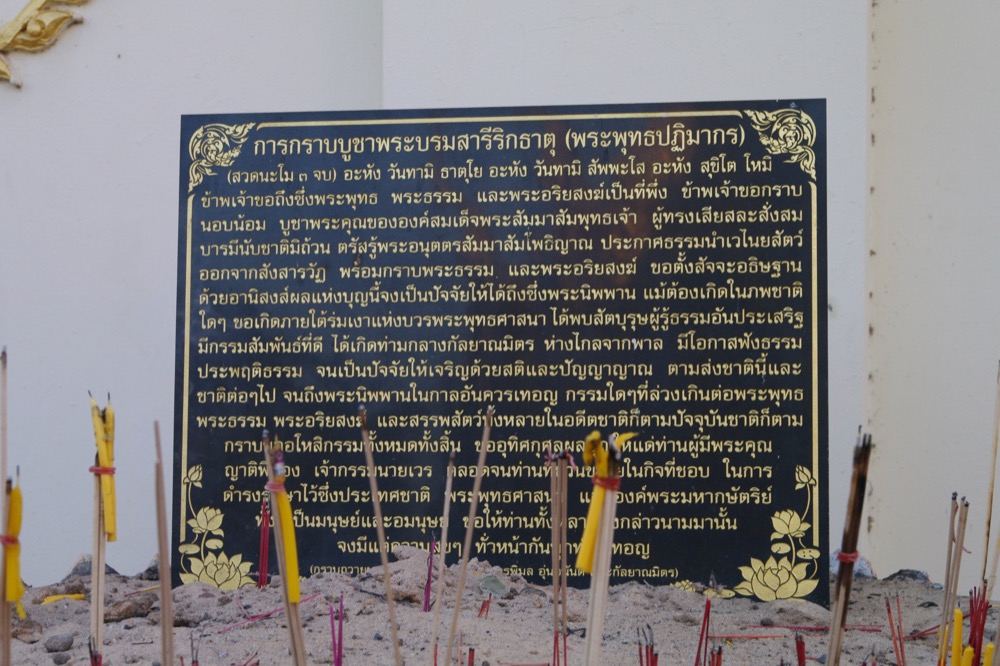 การกราบบูชาพระบรมสารีริกธาตุ (พระพุทธปฏิมากร)
(สวดนะโม ๓ จบ) อะหัง วันทามิ ธาตุโย อะหัง วันทามิ สัพพะโส อะหัง สุขิโต โหมิ
ข้าพเจ้าขอถึงซึ่งพระพุทธ พระธรรม และพระอริยสงฆ์เป็นที่พึ่ง ข้าพเจ้าขอกราบ
นอบน้อม บูชาพระคุณขององค์สมเด็จพระสัมมาสัมพุทธเจ้า ผู้ทรงเสียสละสั่งสม
บารมีนับชาติมิถ้วน ตรัสรู้พระอนุตตรสัมมาสัมโพธิญาณ ประกาศธรรมนำเวไนยสัตว์
ออกจากสังสารวัฏ พร้อมกราบพระธรรม และพระอริยสงฆ์ ขอตั้งสัจจะอธิษฐาน
ด้วยอานิสงส์ผลแห่งบุญนี้จงเป็นปัจจัยให้ได้ถึงซึ่งพระนิพพาน แม้ต้องเกิดในภพชาติ
ใดๆ ขอเกิดภายใต้ร่มเงาแห่งบวรพระพุทธศาสนา ได้พบสัตบุรุษผู้รู้ธรรมอันประเสริฐ
มีกรรมสัมพันธ์ที่ดี ได้เกิดท่ามกลางกัลยาณมิตร ห่างไกลจากพาล มีโอกาสฟังธรรม
ประพฤติธรรม จนเป็นปัจจัยให้เจริญด้วยสติและปัญญาญาณ ตามส่งชาตินี้และ
ชาติต่อๆไป จนถึงพระนิพพานในกาลอันควรเทอญ กรรมใดๆที่ล่วงเกินต่อพระพุทธ
พระธรรม พระอริยสงฆ์ และสรรพสัตว์ทั้งหลายในอดีตชาติก็ตามปัจจุบันชาติก็ตาม
กราบขออโหสิกรรมทั้งหมดทั้งสิ้น ขออุทิศกุศลผลบุญให้แด่ท่านผู้มีพระคุณ
ญาติพี่น้อง เจ้ากรรมนายเวร ตลอดจนท่านที่ ในกิจที่ชอบ ในการ
ดำรงรักษาไว้ซึ่งประเทศชาติ พระพุทธศาสนา และองค์พระมหากษัตริย์
ทั้งเป็นมนุษย์และอมนุษย์ ขอให้ท่านทั้งหลาย กล่าวนามมานั้น
จงมีแต่ความสุขๆ ทั่วหน้ากัน เทอญ
พิมล กัลยาณมิตร)